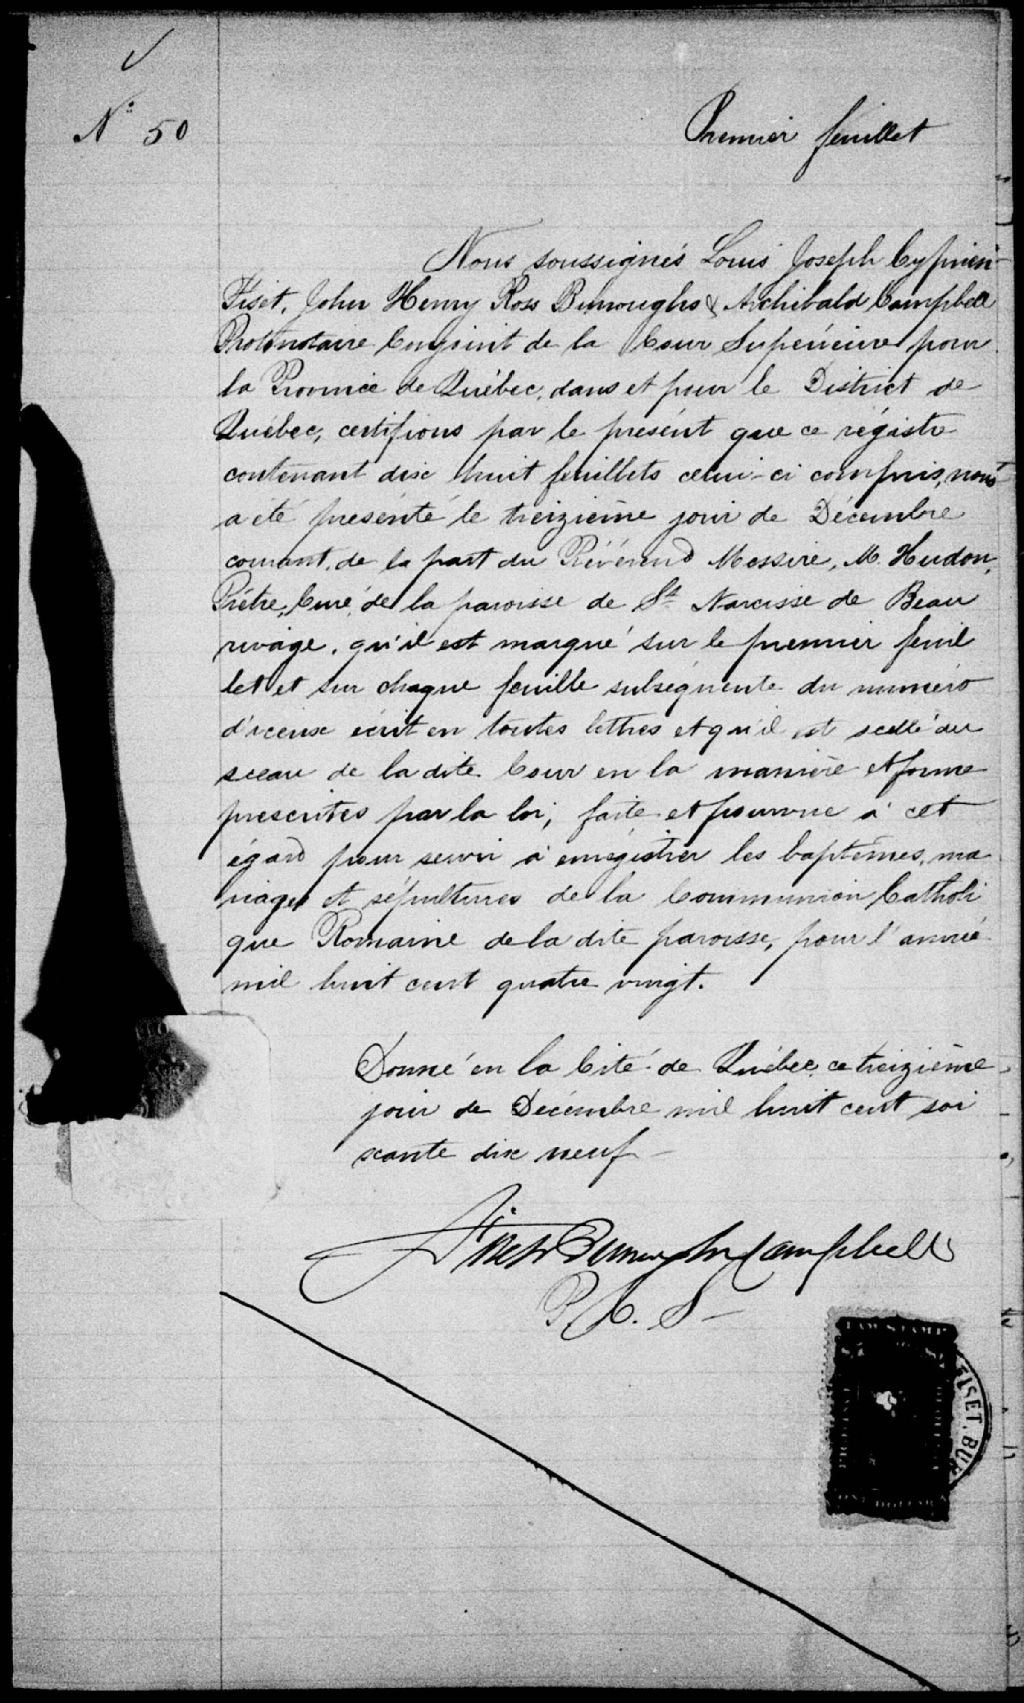 N° 50
Premier feuillet
Nous soussignés Louis Joseph Cyprien
Fiset, John Henry Ross Burroughs & Archibald Campbell
Protonotaire Conjoint de la Cour Supérieure pour
la Province de Québec, dans et pour le District de
Québec, certifions par le présent que ce régistre
contenant dix huit feuillets celui-ci compris, nous
a été présénté le treizième jour de Décembre
courant, de la part du Révérend Messire, M. Hudon,
Prêtre, Curé de la paroisse de St Narcisse de Beau
rivage, qu'il est marqué sur le premier feuil
let et sur chaque feuille subséquente du numéro
d'iceux écrit en toutes lettres et qu'il est scellé du
sceau de la dite Cour en la manière et forme
prescrites par la loi, faite et pourvue à cet
égard pour servir à enrégistrer les baptêmes, ma
riages et sépultures de la Communion Catholi
que Romaine de la dite paroisse, pour l'année
mil huit cent quatre vingt.
Donné en la Cité de Québec, ce treizième
jour de Décembre mil huit cent soi
xante dix neuf
Fiset Burroughs Campbell
P. C. S
LAW STAMP
FISET, BUR
ONE DOLLAR